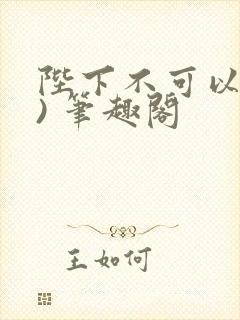 陛下不可以
)笔趣阁
王如何